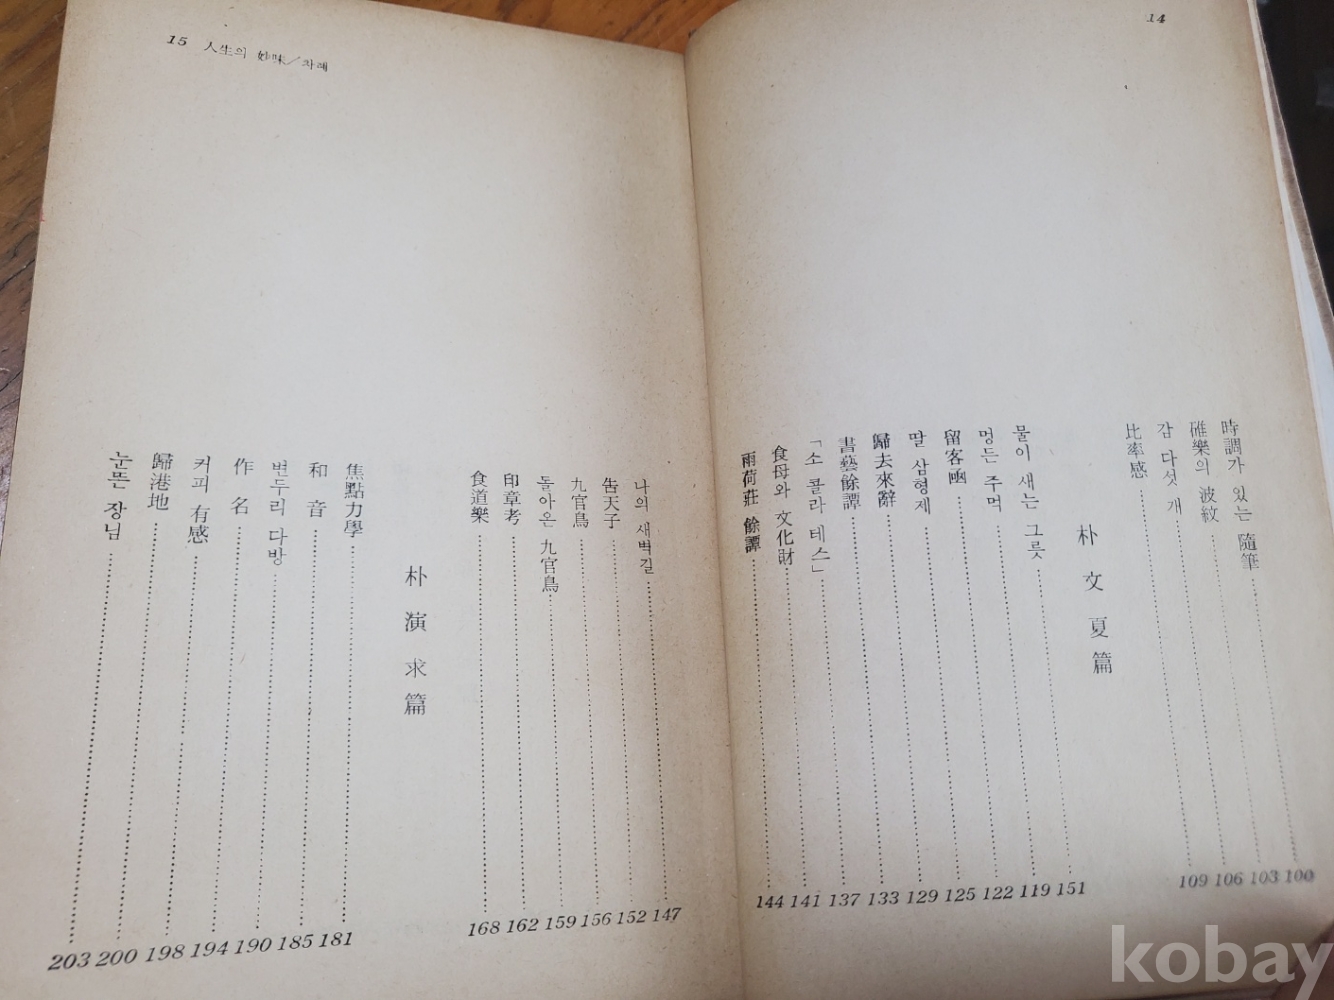 14
時調가 있는 隨筆 100
碓樂의 波紋 103
감 다섯 개 106
比率感 109
朴文夏篇
물이 새는 그릇 151
멍든 주먹 119
留客凾 122
딸 삼형제 125
歸去來辭 129
書藝餘譚 133
「소콜라테스」 137
食母와 文化財 141
雨荷莊 餘譚 144
15 人生의 妙味/차례
나의 새벽길 147
告天子 152
九官鳥 156
돌아온 九官鳥 159
印章考 162
食道樂 168
朴演求篇
焦點力學 181
和音 185
변두리 다방 190
作名 194
커피 有感 198
歸港地 200
눈뜬 장님 203
kobay